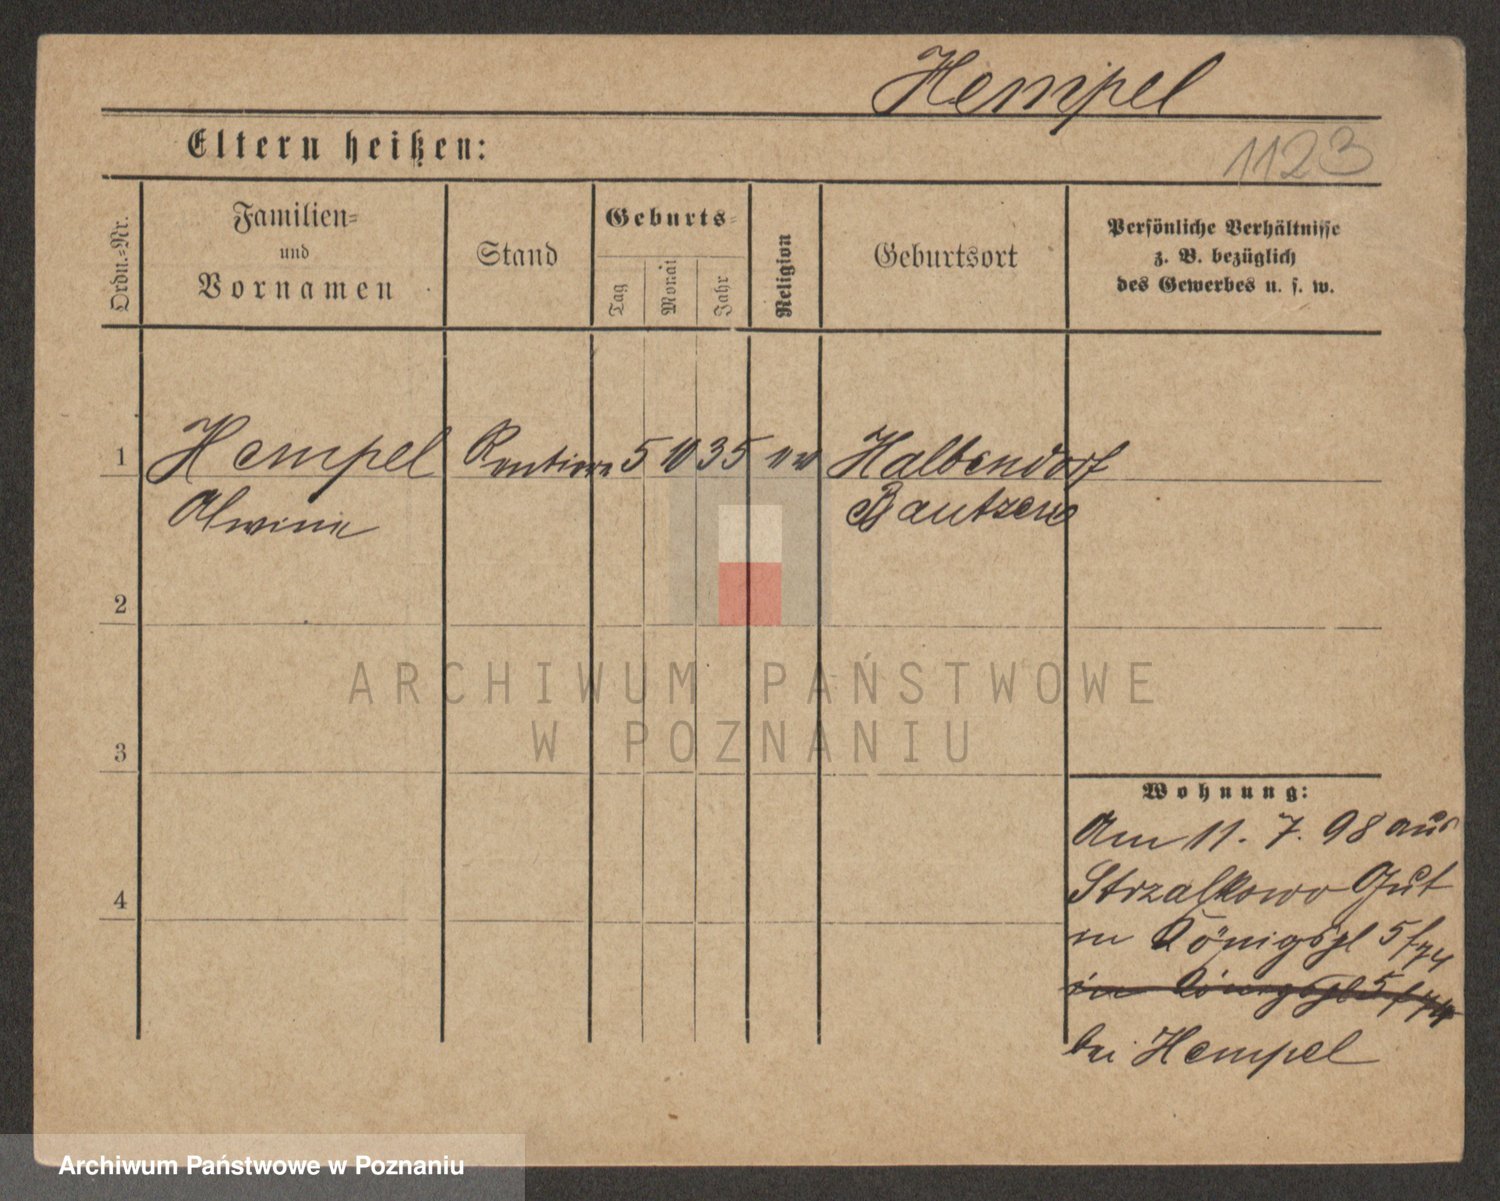 Hempel
Eltern heißen:
1123
Ordn.=Nr.
Familien=
und
Vornamen
Stand
Geburts=
Tag
Monat
Jahr
Religion
Geburtsort
Persönliche Verhältnisse
z. B. bezüglich
des Gewerbes u. s. w.
1 Hempel Rentiere 5 10 35 ev Halbendorf
Alwine Bautzen
2
3
4
Wohnung:
Am 11. 7. 98 aus
Strzalkowo Gut
in Königspl 5
in Königspl 5
bei Hempel
ARCHIWUM PAŃSTWOWE
W POZNANIU
Archiwum Państwowe w Poznaniu